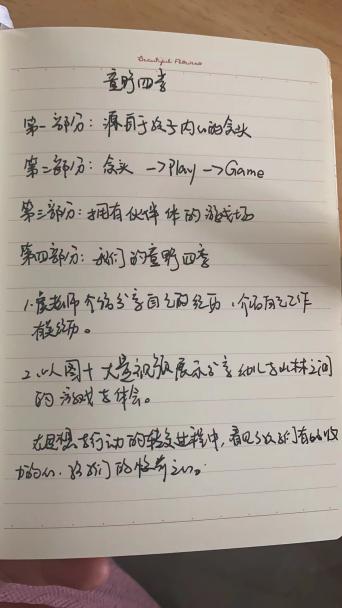 Beautiful Flowers
童野四季
第一部分：源自于孩子内心的念头
第二部分：念头 —>Play —>Game
第三部分：拥有伙伴体的游戏场
第四部分：我们的童野四季
1.崔老师介绍分享自己的经历，介绍自己工作
有关经历。
2.以图+大量视频展示分享幼儿与山林之间
的游戏与体会。
在思想与行动的转变过程中，看见了孩子们有的
的心，孩子们的惊奇之心。